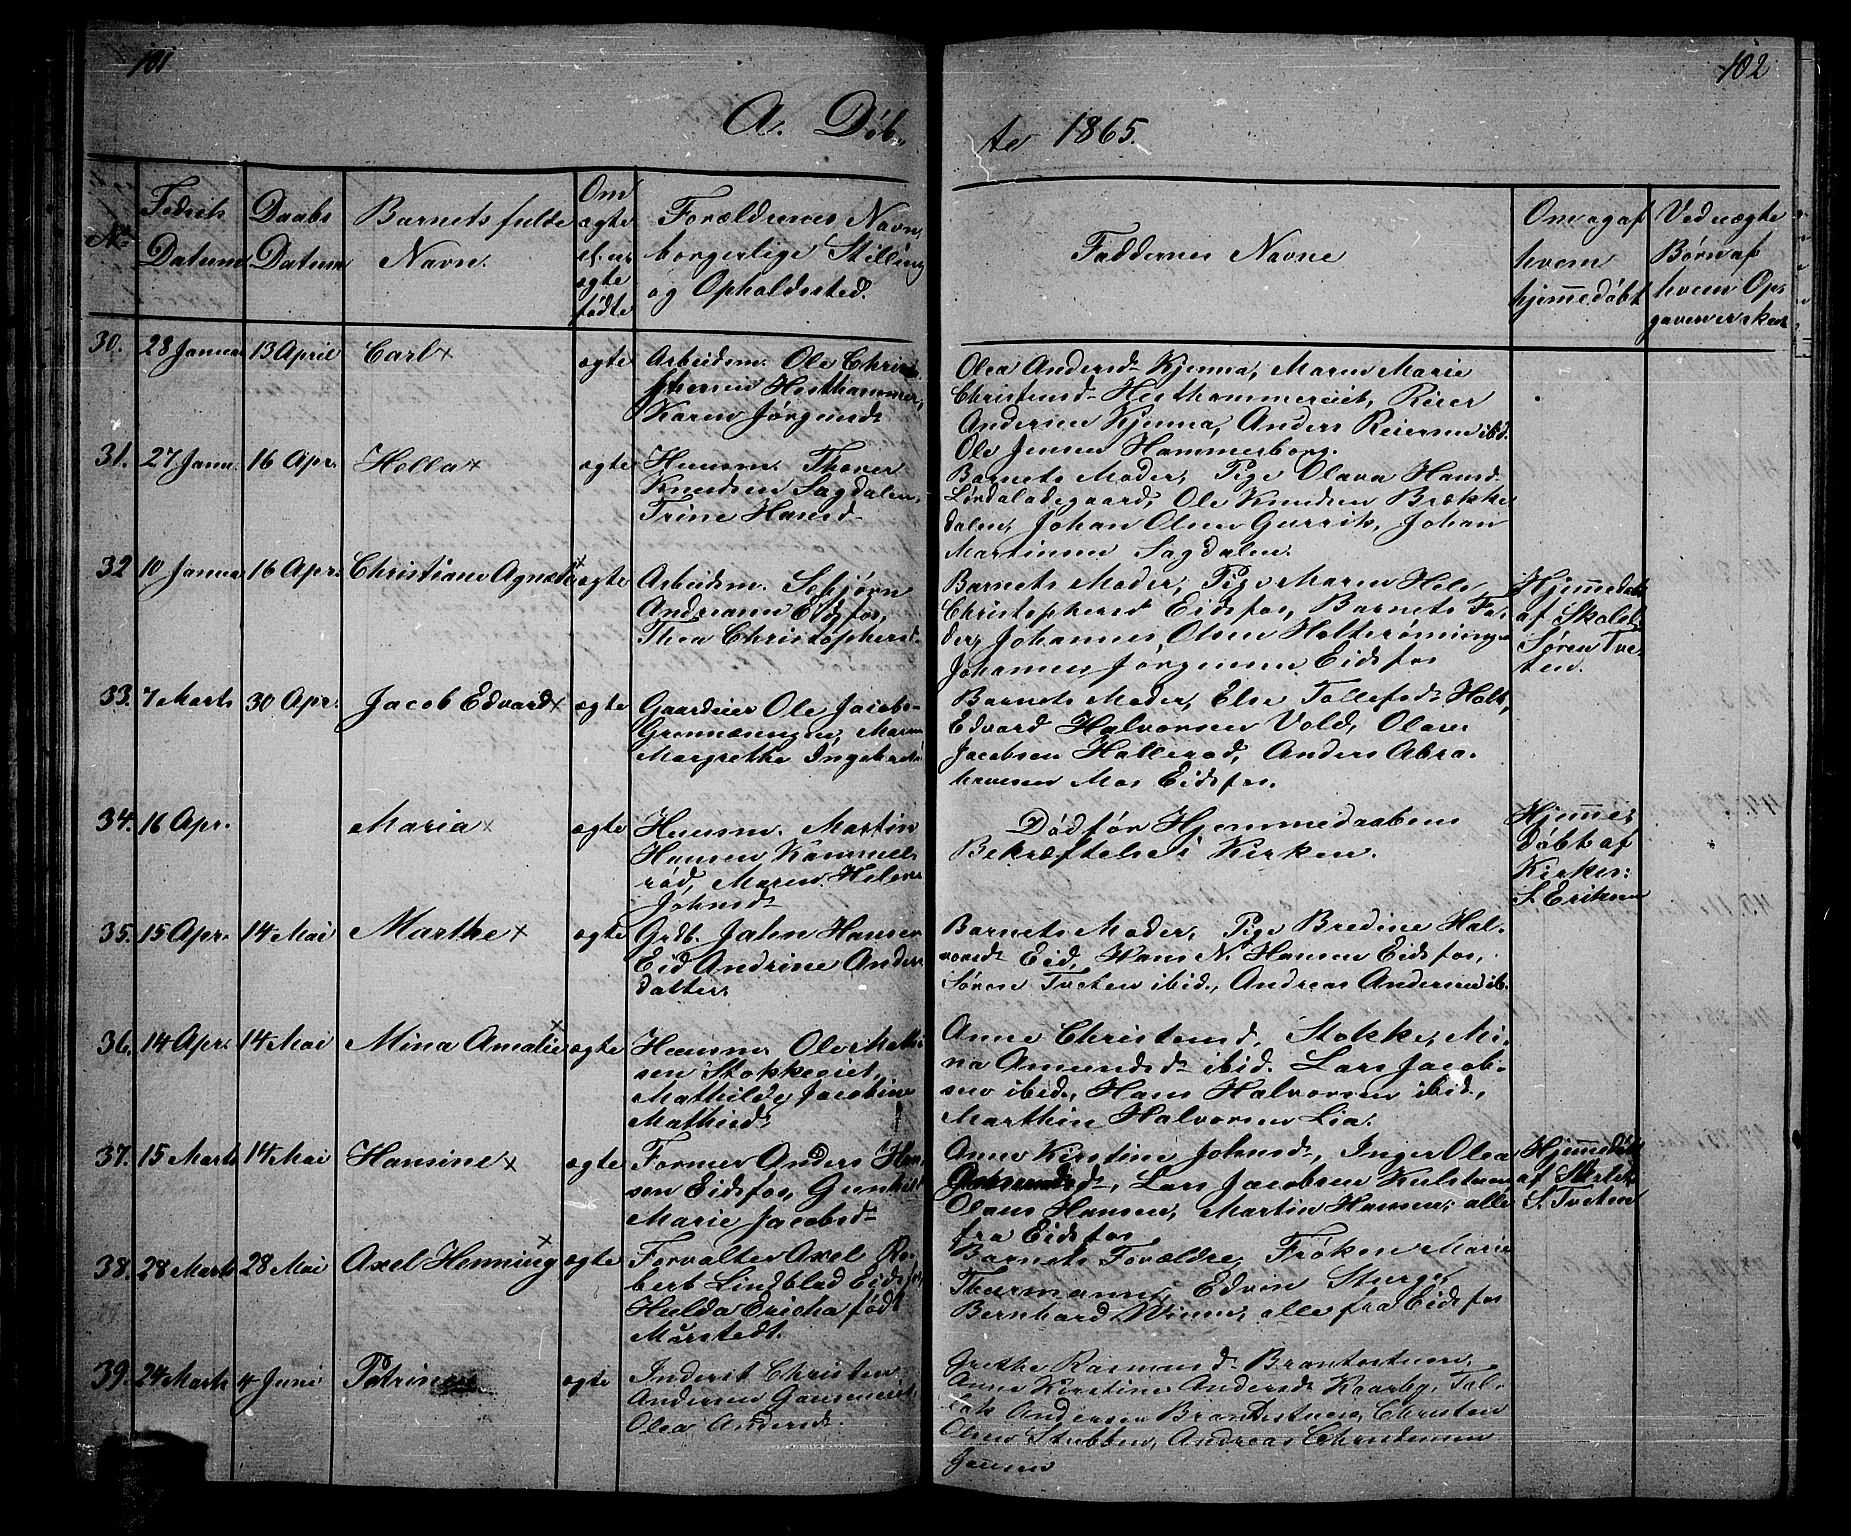 101
102
A. Døb„
te 1865.
No
Fødsels
Datum
Daabs
Datum
Barnets fulde
Navn.
Om
ægte
el. u-
ægte
fødte
Forældrenes Navn,
borgerlige Stilling
og Opholdssted.
Faddernes Navne
Om og af
hvem
hjemmedøbt
Ved uægte
Børn af
hvem Op-
gaven er skeet
30. 28 Januar 13 April Carl ægte
Arbeidsm. Ole Chri
stensen Hesthammer,
Karen Jørgensd.
Olea Andersd. Kjenna, Maren Marie
Christensd. Hesthammereiet, Reier
Andersen Kjenna, Anders Reiersen ibd.
Ole Jensen Hammersborg.
31. 27 Janu. 16 Apr. Hella ægte
Huusm. Thorer
Knudsen Sagdalen,
Trine Hansd.
Barnets Moder, Pige Olava Hansd.
Lindaladegaard, Ole Knudsen Brække
dalen, Johan Olsen Gurrik, Johan
Martinsen Sagdalen.
32 10 Januar 16 Apr. Christiane Agnete ægte
Arbeidsm.
Andreasen Eidsfos,
Thea Christophersd.
Barnets Moder, Pige Maren Hele
Christophersd. Eidsfos, Barnets Fa-
der, Johannes Olsen Holterønningen
Johannes Jørgensen Eidsfos
Hjemmedøbt
af Skolel.
Søren Tve-
ten.
33. 7 Marts 30 Apr. Jacob Edvard ægte
Gaardeier Ole Jacobs-
Grønnæningen, Maren
Margrethe Ingebretsd.
Barnets Moder, Else Tollefsd. Holt,
Edvard Halvorsen Vold, Olaus
Jacobsen Hallerød, Anders Abra-
hamsen Moe Eidsfos.
34. 16 Apr. Maria ægte
Huusm. Martin
Hansen Kammel-
rød, Maren Helene
Johnsd.
Død før Hjemmedaabens
Bekræftelse i Kirken.
Hjemme-
døbt af
Kirkes:
S. Eriksen
35. 15 Apr. 14 Mai Marthe ægte
Grdb. John Hansen
Eid Andrine Anders
datter.
Barnets Moder, Pige Bredine Hal-
vorsd. Eid, Hans N. Hansen Eidsfos,
Søren Tveten ibid., Andreas Andersen ib.
36. 14 Apr. 14 Mai Mina Amalie ægte
Huusm. Ole Mathi
sen Stokkeeiet,
Mathilde Jacobine
Mathisd.
Anne Christensd. Stokke, Mi-
na Amundsd. ibid. Lars Jacob-
sen ibid., Hans Halvorsen ibid.,
Marthin Halvorsen Lia.
37. 15 Marts 14 Mai Hansine ægte
Former Anders Han
sen Eidsfos, Gunhild
Marie Jacobsd.
Anne Kirstine Johnsd., Inger Olea
Lars Jacobsen
Olaus Hansen, Martin Hansen, alle
fra Eidsfos
Hjemmedøbt
af Skolel.
S. Tveten
38. 28 Marts 28 Mai Axel Henning ægte
Forvalter Axel Ro-
bert Lindblad Eidsfos,
Hulda Ericha født
Marstedt.
Barnets Forældre, Frøken Marie
Thurmanne, Edvin Sturge,
Bernhard Winner, alle fra Eidsfos
39. 24 Marts 4 Juni Petrine ægte
Inderst Christen
Andersen
Olea Andersd.
Grethe Rasmusd. Brantestuen,
Anne Kirstine Andersd. Kaarby, Tal-
lak Andersen Brantestuen, Christen
Olsen Stubben, Andreas Christensen
Jansen